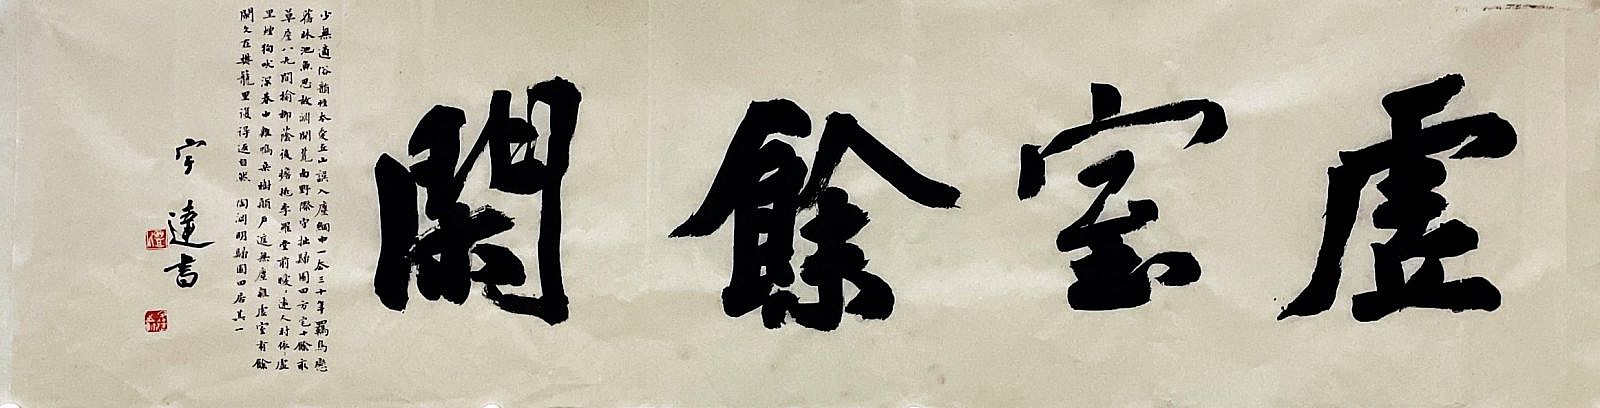 虛室餘閑
少無適俗韻性本愛丘山誤入塵網中一去三十年羈鳥戀
舊林池魚思故淵開荒南野際守拙歸園田方宅十餘畝
草屋八九間榆柳蔭後檐桃李羅堂前曖々遠人村依々墟
里煙狗吠深巷中雞鳴桑樹顛戶庭無塵雜虛室有餘
閑久在樊籠里復得返自然 陶淵明歸園田居其一
宇達書